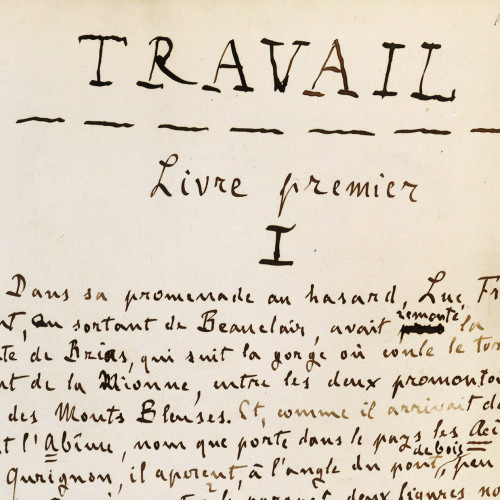 TRAVAIL
Livre premier
I
Dans sa promenade au hasard, Luc Fr
nt, en sortant de Beauclair, avait remonté la
te de Brias, qui suit la gorge où coule le tor
nt de la Mionne, entre les deux promontoi
des Monts Bleuses. Et, comme il arrivait de
t l'Abîme, nom que porte dans le pays les Aci
Qurignon, il aperçut, à l'angle du pont de bois, peu
deux figures no